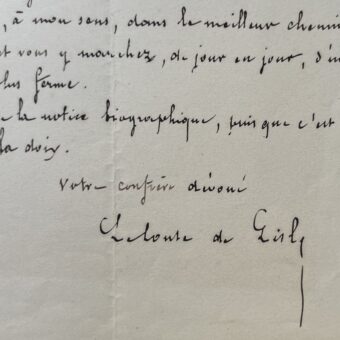 , à mon sens, dans le meilleur chemin
et vous y marchez, de jour en jour, d'un
plus ferme.
la notice biographique, puis que c'est
la doix.
Votre confrère dévoué
Leconte de Lisle